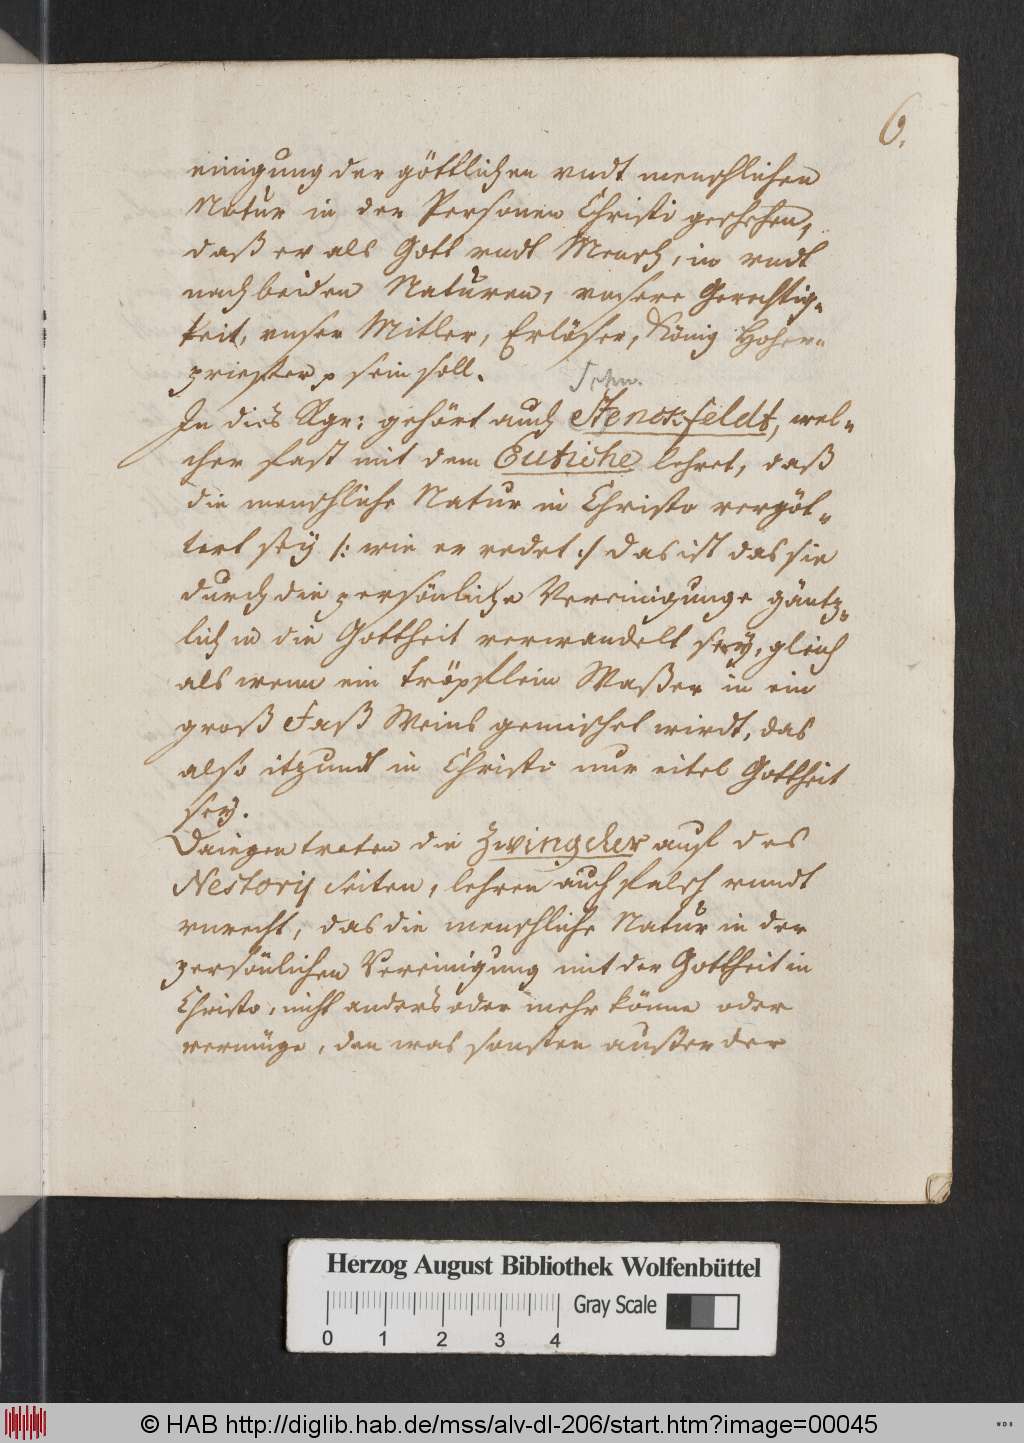 6.
einigung der göttlichen vndt menschlichen
Natur in der Personen Christi geschehen,
daß er als Gott vndt Mensch, in vndt
nach beiden Naturen, vnsere Gerechtig-
keit, vnser Mitler, Erlöser, König Hoher-
priester p sein soll.
Schw.
In dies Rgr: gehört auch Stenckfeldt, wel-
cher fast mit dem Eutiche lehret, daß
die menschliche Natur in Christo vergöt-
tert sey /: wie er redet :/ das ist das sie
durch die persönliche Vereinigunge gäntz-
lich in die Gottheit verwandelt sey, gleich
als wenn ein tröpfflein Waßer in ein
groß Faß Weins gemischet wirdt, das
also itzundt in Christo nur eitel Gottheit
sey.
Daiegen treten die Zwingeler auff des
Nestorij seiten, lehren auch falsch vnndt
vnrecht, das die menschliche Natur in der
persönlichen Vereinigung mit der Gottheit in
Christo, nicht anders oder mehr könne oder
vermüge, den was sonsten außer der
Herzog August Bibliothek Wolfenbüttel
Gray Scale
0 1 2 3 4
© HAB http://diglib.hab.de/mss/alv-dl-206/start.htm?image=00045